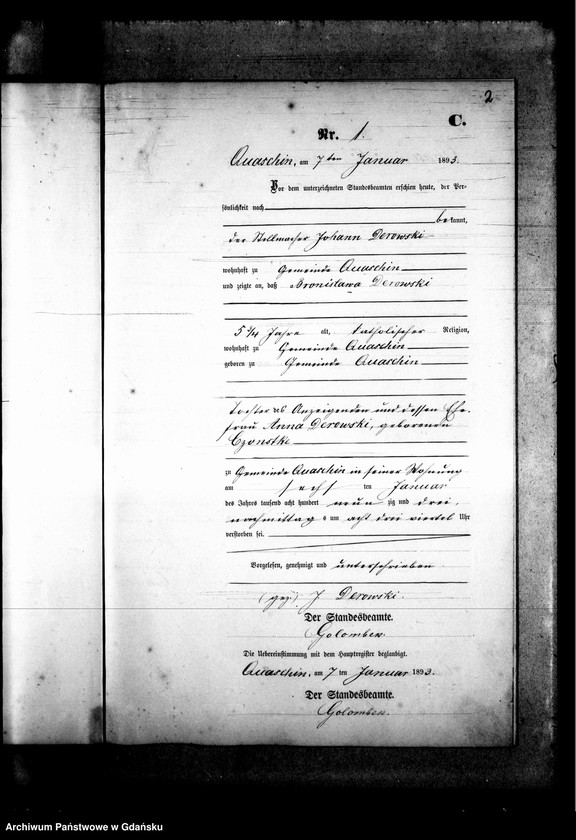 2
C.
Nr. 1.
Quaschin, am 7ten Januar 1893.
Vor dem unterzeichneten Standesbeamten erschien heute, der Per-
sönlichkeit nach
bekannt,
der Stellmacher Johann Derowski
wohnhaft zu Gemeinde Quaschin
und zeigte an, daß Bronislawa Derowski
5 3/4 Jahre alt, katholischer Religion,
wohnhaft zu Gemeinde Quaschin
geboren zu Gemeinde Quaschin
Tochter des Anzeigenden und dessen Ehe-
frau Anna Derowski, geborenen
zu Gemeinde Quaschin in seiner Wohnung
am sechs ten Januar
des Jahres tausend acht hundert neun zig und drei,
nachmittags um acht drei viertel Uhr
verstorben sei.
Vorgelesen, genehmigt und unterschrieben.
(gez.) J. Derowski.
Der Standesbeamte.
Golombek.
Die Uebereinstimmung mit dem Hauptregister beglaubigt.
Quaschin, am 7 ten Januar 1893.
Der Standesbeamte.
Golombek.
Archiwum Państwowe w Gdańsku